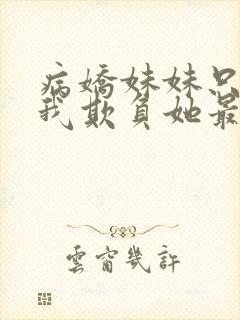 病嬌妹妹只
我欺負她最
雲窗幾許